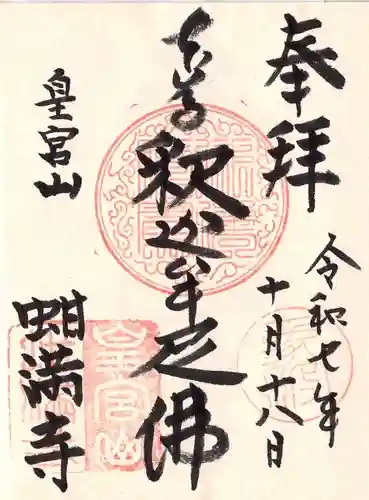 奉拝
令和七年
十月十八日
本尊
釈迦牟尼佛
皇宮山
蚶満寺